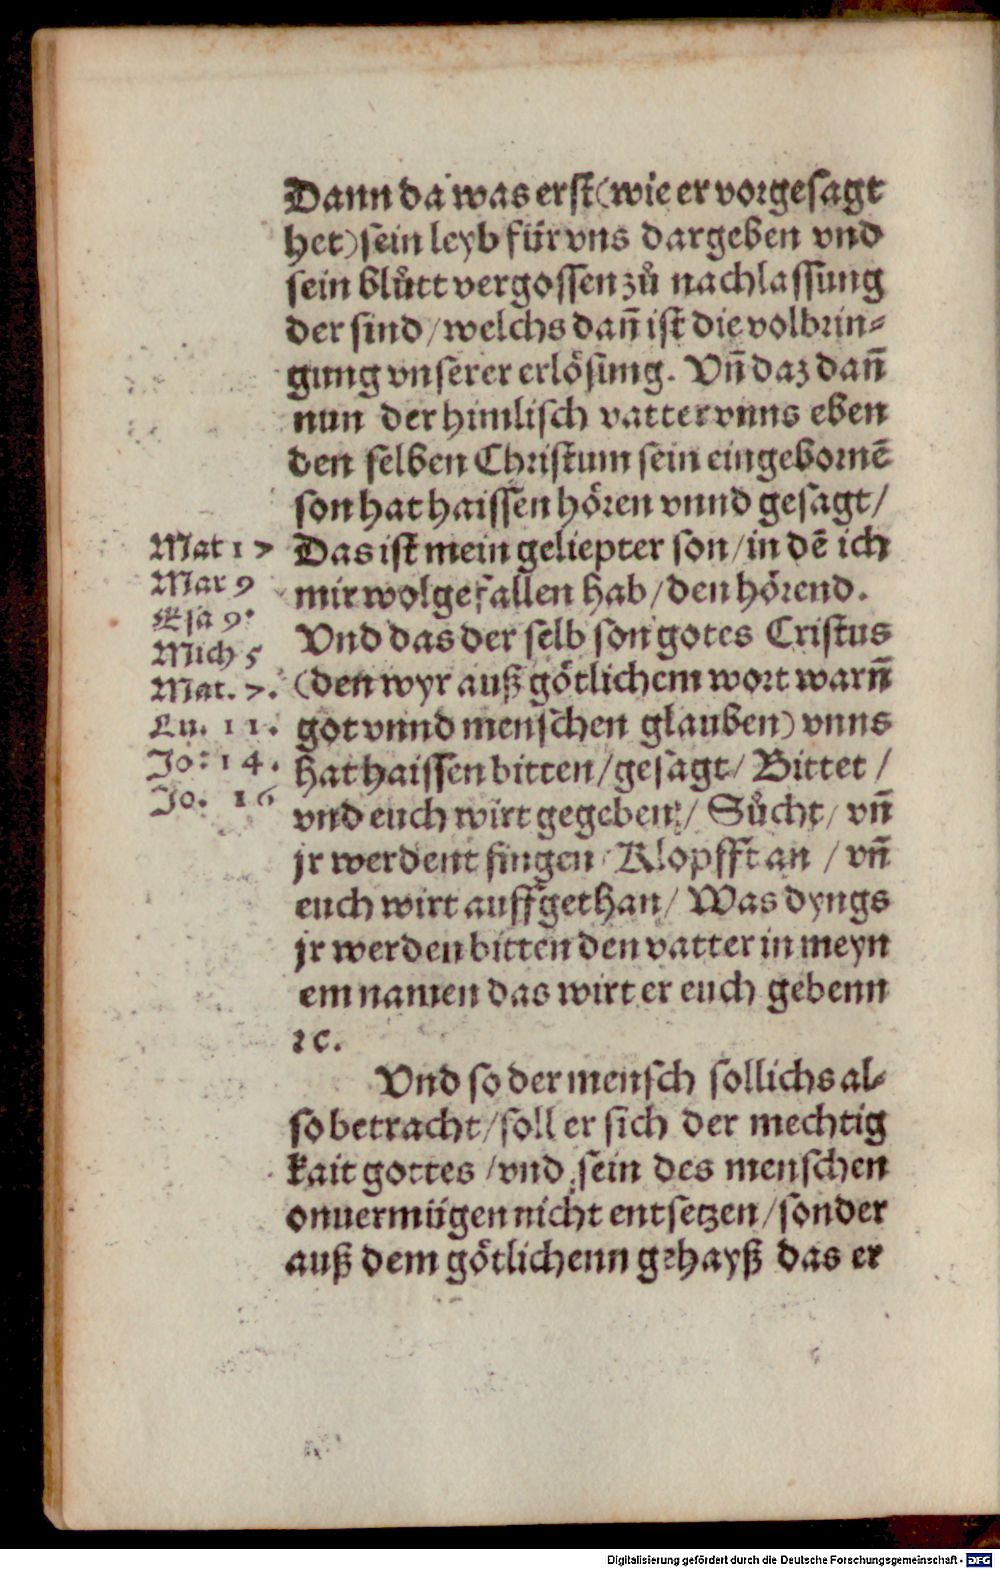 Dann da was erst (wie er vorgesagt
het) sein leyb für vns dargeben vnd
sein blůtt vergossen zů nachlassung
der sind / welchs dañ ist die volbrin⸗
gung vnserer erlösung. Vñ daz dañ
nun der himlisch vatter vnns eben
den selben Christum sein eingebornē
son hat haissen hören vnnd gesagt /
Das ist mein geliepter son / in dē ich
mir wolgefallen hab / den hörend.
Vnd das der selb son gotes Cristus
(den wyr auß götlichem wort warñ
got vnnd menschen glauben) vnns
hat haissen bitten / gesagt / Bittet /
vnd euch wirt gegeben / Sůcht / vñ
jr werdent fingen / Klopfft an / vñ
euch wirt auffgethan / Was dyngs
jr werden bitten den vatter in meyn
em namen das wirt er euch gebenn
ꝛc.
Mat 17
Mar 9
Esa 9.
Mich 5
Mat. 7.
Lu. 11.
Jo: 14.
Jo. 16
Vnd so der mensch sollichs al⸗
so betracht / soll er sich der mechtig
kait gottes / vnd sein des menschen
onuermügen nicht entsetzen / sonder
auß dem götlichenn gehayß das er
Digitalisierung gefördert durch die Deutsche Forschungsgemeinschaft - DFG